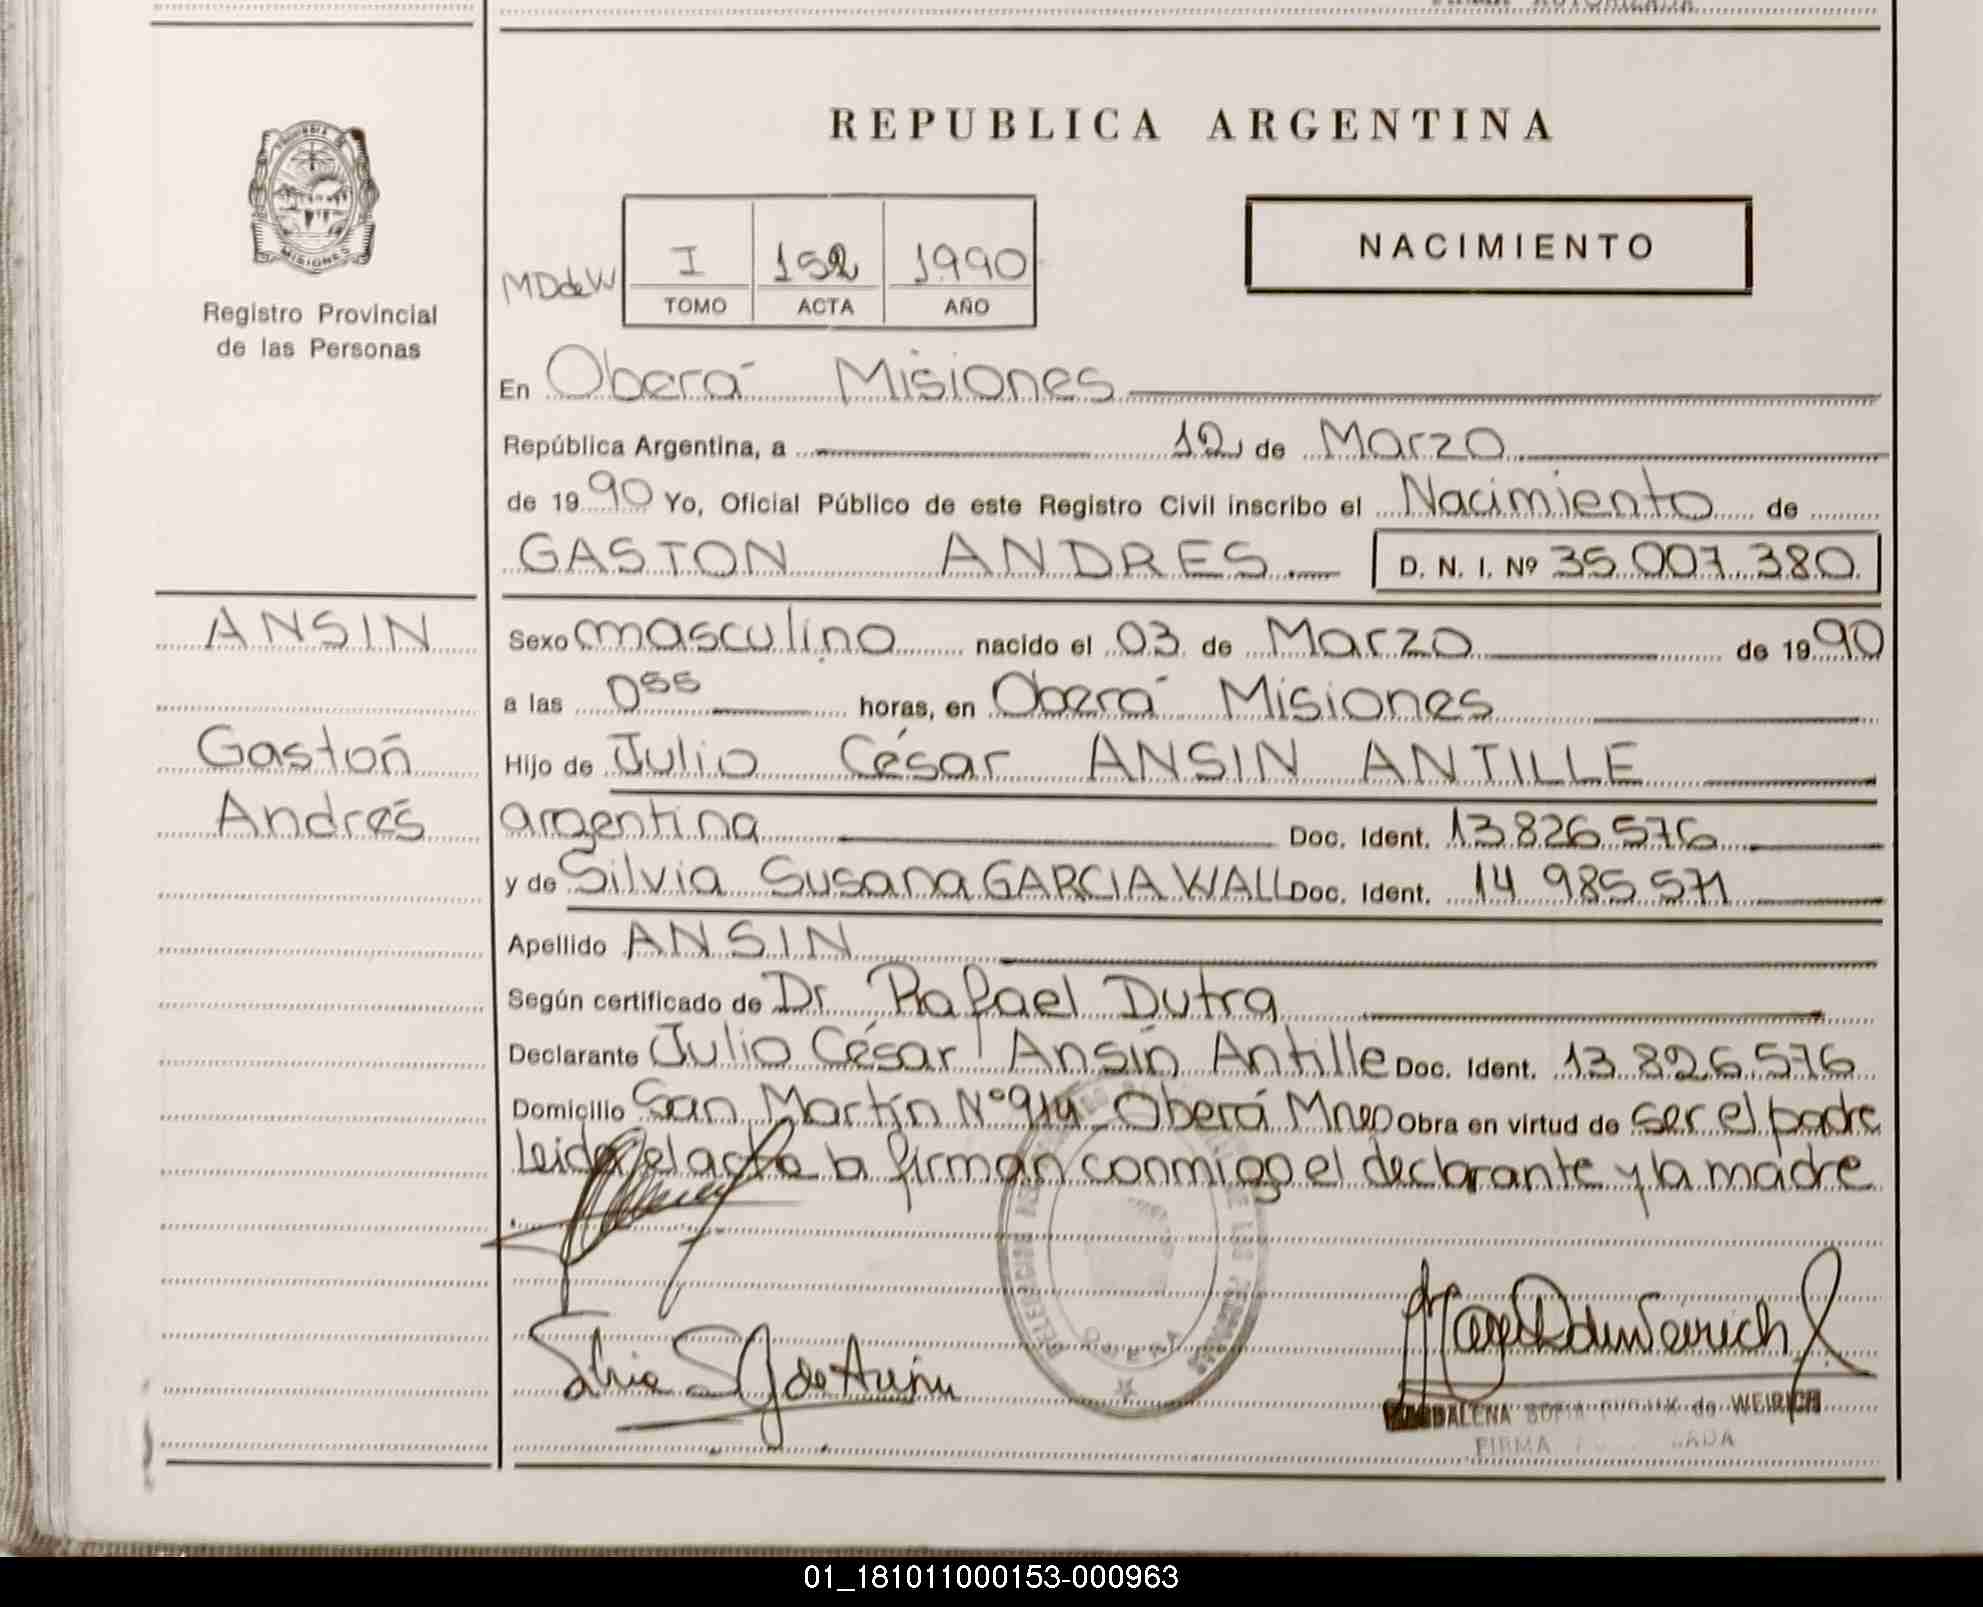 REPUBLICA ARGENTINA
PROVINCIA DE
MISIONES
Registro Provincial
de las Personas
MDdeW
I 152 1990
TOMO ACTA AÑO
NACIMIENTO
En Oberá Misiones
República Argentina, a 12 de Marzo
de 1990 Yo, Oficial Público de este Registro Civil inscribo el Nacimiento de
GASTON ANDRES.— D. N. I. Nº 35.007.380
ANSIN
Gastón
Andrés
Sexo masculino nacido el 03 de Marzo de 1990
a las 0⁵⁵ horas, en Oberá Misiones
Hijo de Julio César ANSIN ANTILLE
argentina Doc. Ident. 13.826.576
y de Silvia Susana GARCIA WALL Doc. Ident. 14 985 571
Apellido ANSIN
Según certificado de Dr. Rafael Dutra
Declarante Julio César Ansin Antille Doc. Ident. 13.826.576
Domicilio San Martín Nº 914 - Oberá Mnes Obra en virtud de ser el padre
Leida el acta la firman conmigo el declarante y la madre
Silvia S G de Ansin
OBERA
MAGDALENA SOFIA de WEIRICH
FIRMA
01_181011000153-000963